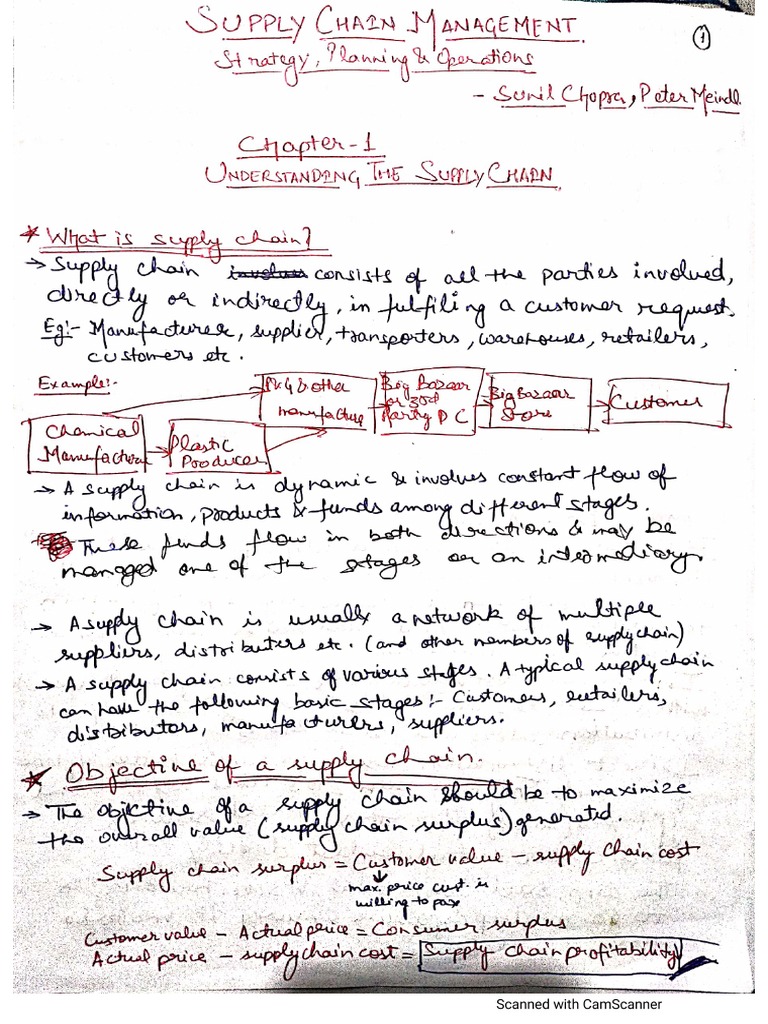 SUPPLY CHAIN MANAGEMENT.
1
Strategy, Planning & Operations
- Sunil Chopra, Peter Meindl.
Chapter-1
UNDERSTANDING THE SUPPLY CHAIN.
* What is supply chain?
→ Supply chain involves consists of all the parties involved,
directly or indirectly, in fulfiling a customer request.
Eg:- Manufacturer, supplier, transporters, warehouses, retailers,
customers etc.
Example:-
P&G & other
manufacture
Big Bazaar
or 3rd
Party DC
Big Bazaar
Store
Customer
Chemical
Manufacture
Plastic
Producer
→ A supply chain is dynamic & involves constant flow of
information, products & funds among different stages.
These funds flow in both directions & may be
managed one of the stages or an intermediary.
→ A supply chain is usually a network of multiple
suppliers, distributers etc. (and other members of supply chain)
→ A supply chain consists of various stages. A typical supply chain
can have the following basic stages:- Customers, retailers,
distributors, manufacturers, suppliers.
* Objective of a supply chain.
→ The objective of a supply chain should be to maximize
the overall value (supply chain surplus) generated.
Supply chain surplus = Customer value - supply chain cost
↓
max. price cust. is
willing to pay
Customer value - Actual price = Consumer surplus
Actual price - supply chain cost = Supply chain profitability
Scanned with CamScanner